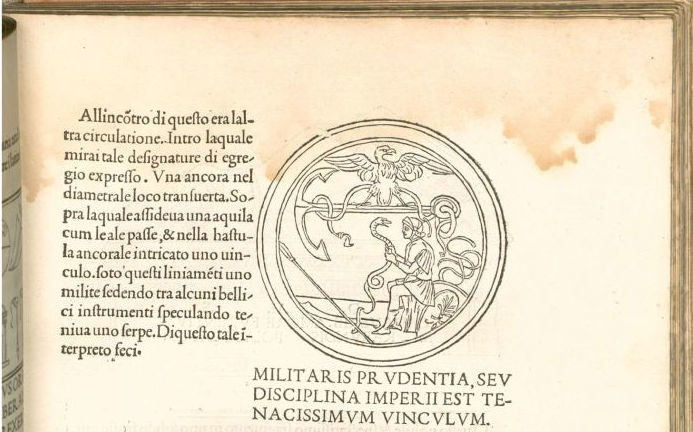 Allincõtro di questo era lal-
tra circulatione. Intro laquale
mirai tale designature di egre-
gio expresso. Vna ancora nel
diametrale loco transuerta. So-
pra laquale assideua una aquila
cum le ale passe, & nella hastu-
la ancorale intricato uno uin-
culo. soto questi liniaméti uno
milite sedendo tra alcuni belli-
ci instrumenti speculando te-
niua uno serpe. Di questo tale i-
terpreto feci.
MILITARIS PRVDENTIA, SEV
DISCIPLINA IMPERII EST TE-
NACISSIMVM VINCVLVM.